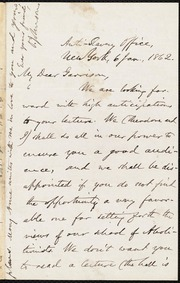 Anti-Slavery Office,
New York, 6 Jan., 1862
My Dear Garrison,
We are looking for-
ward with high anticipation
to your lecture. We (Theodore and
I) shall do all in our power to
ensure you a good audi-
ence, and we shall be dis-
appointed if you do not find
the opportunity a very favor-
able one for setting forth the
views of our school of Abo-
litionists. We don't want you
to read a lecture (the hall is